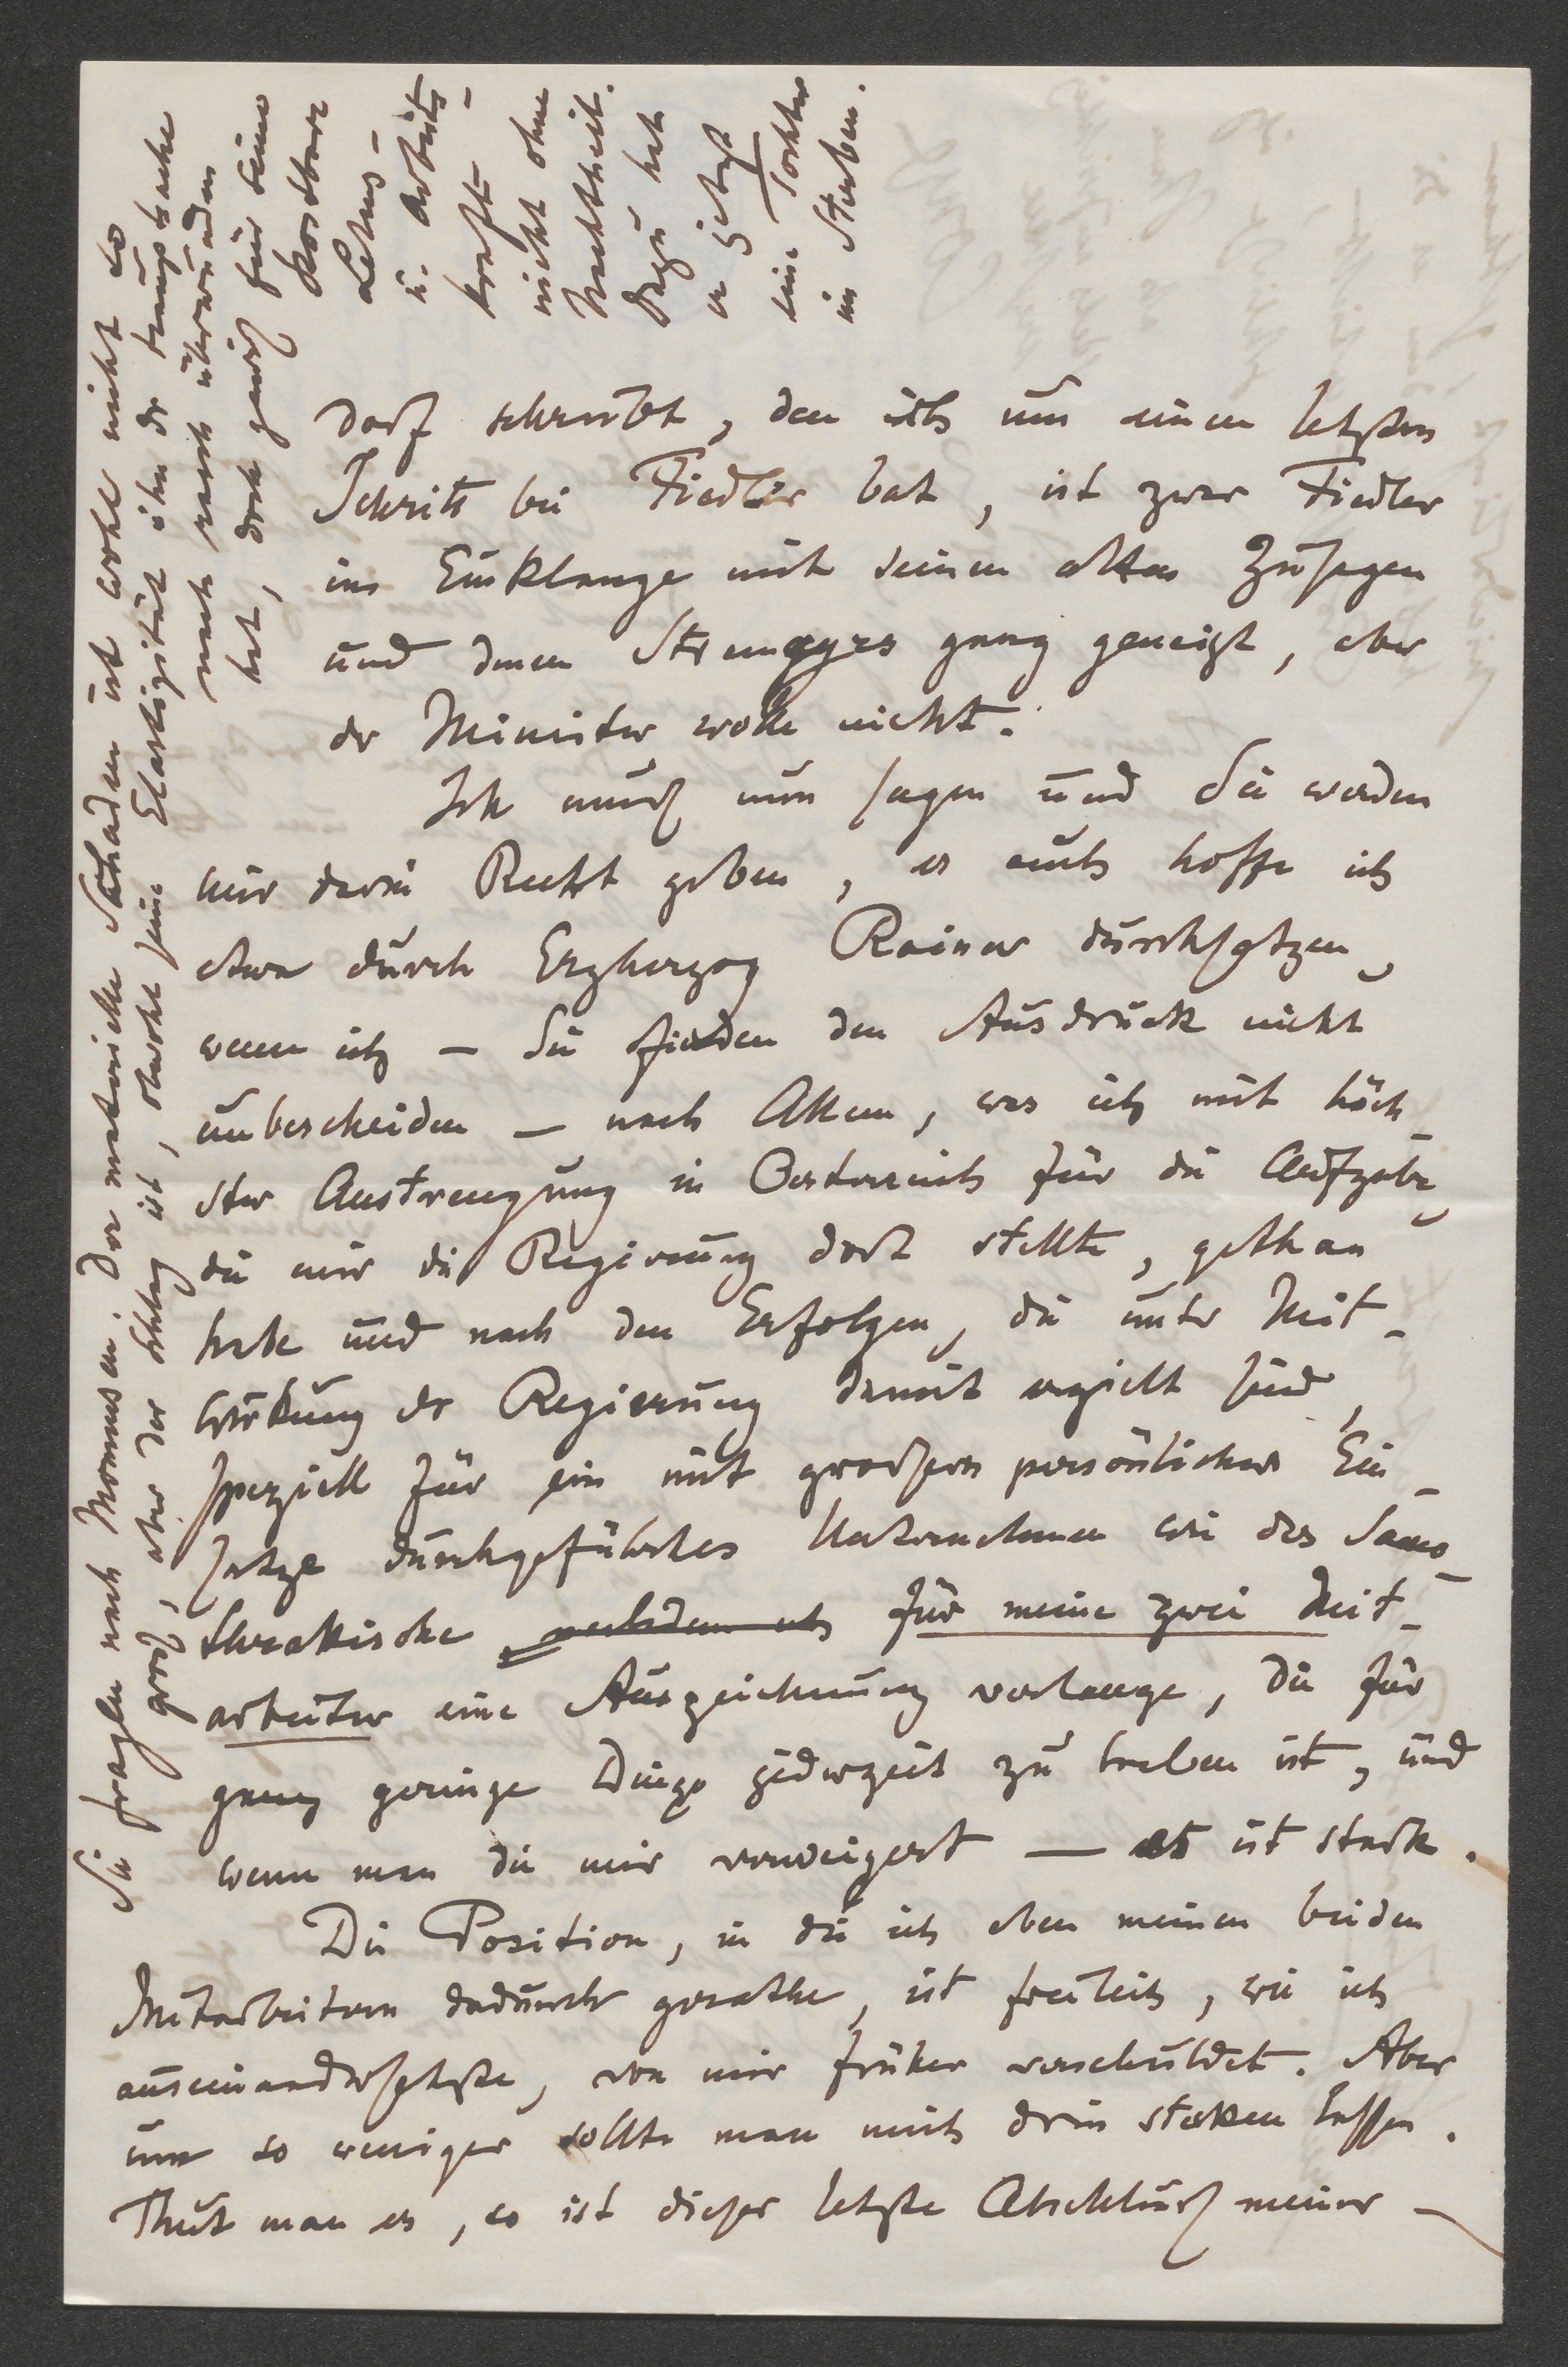 dorf schreibt, den ich um einen letzten
Schritt bei Fiedler bat, ist zwar Fiedler
im Einklange mit seinen alten Zusagen
und denen Stremayrs ganz geneigt, aber
der Minister wolle nicht.
Ich muß nun sagen und Sie werden
mir darin Recht geben, es auch hoffe ich
etwa durch Erzherzog Rainer durchsetzen,
wenn ich — Sie finden den Ausdruck nicht
unbescheiden — nach Allem, was ich mit höch-
ster Anstrengung in Oesterreich für die Aufgabe,
die mir die Regierung dort stellte, gethan
habe und nach den Erfolgen, die unter Mit-
wirkung der Regierung damit erzielt sind,
speziell für ein mit großem persönlichen Ein-
satze durchgeführtes Unternehmen wie das Samo-
thrakische, nachdem ich für meine zwei Mit-
arbeiter eine Auszeichnung verlange, die für
ganz geringe Dinge jederzeit zu haben ist, und
wenn man die mir verweigert — es ist stark.
Die Position, in die ich eben meinen beiden
Mitarbeitern dadurch gerathe, ist freilich, wie ich
auseinandersetzte, von mir früher verschuldet. Aber
um so weniger sollte man mich drin stecken lassen.
Thut man es, so ist dieser letzte Abschluß meiner —
Sie fragten nach Mommsen. Der materielle Schaden ist wohl nicht so
groß, aber der Schlag ist, obwohl seine Elastizität ihn der Hauptsache
nach rasch überwunden
hat, doch gewiß für seine
kostbare
Lebens-
u. Arbeits-
kraft
nicht ohne
Nachtheil.
Dazu hat
er jetzt
eine Tochter
im Sterben.